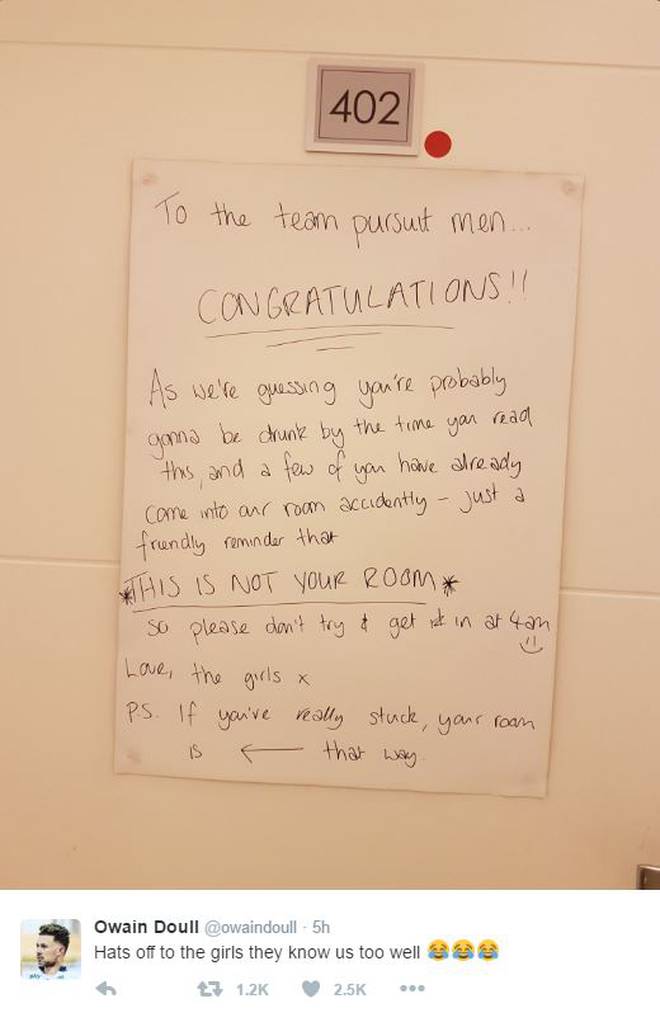 402
To the team pursuit men...
CONGRATULATIONS!!
As we're guessing you're probably
gonna be drunk by the time you read
this, and a few of you have already
come into our room accidently - just a
friendly reminder that
*THIS IS NOT YOUR ROOM*
so please don't try & get in at 4am
Love, the girls x
P.S. If you're really stuck, your room
is ← that way.
Owain Doull @owaindoull · 5h
Hats off to the girls they know us too well 😂😂😂
1.2K 2.5K